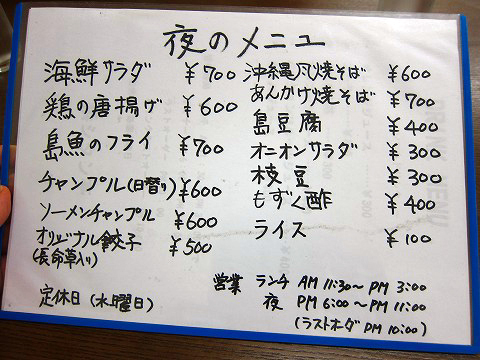 夜のメニュー
海鮮サラダ ¥700
鶏の唐揚げ ¥600
島魚のフライ ¥700
チャンプル(日替り) ¥600
ソーメンチャンプル ¥600
オリジナル餃子 ¥500
(長命草入り)
定休日(水曜日)
沖縄風焼そば ¥600
あんかけ焼そば ¥700
島豆腐 ¥400
オニオンサラダ ¥300
枝豆 ¥300
もずく酢 ¥400
ライス ¥100
営業 ランチ AM 11:30〜PM 3:00
夜 PM 6:00〜PM 11:00
(ラストオーダ PM 10:00)